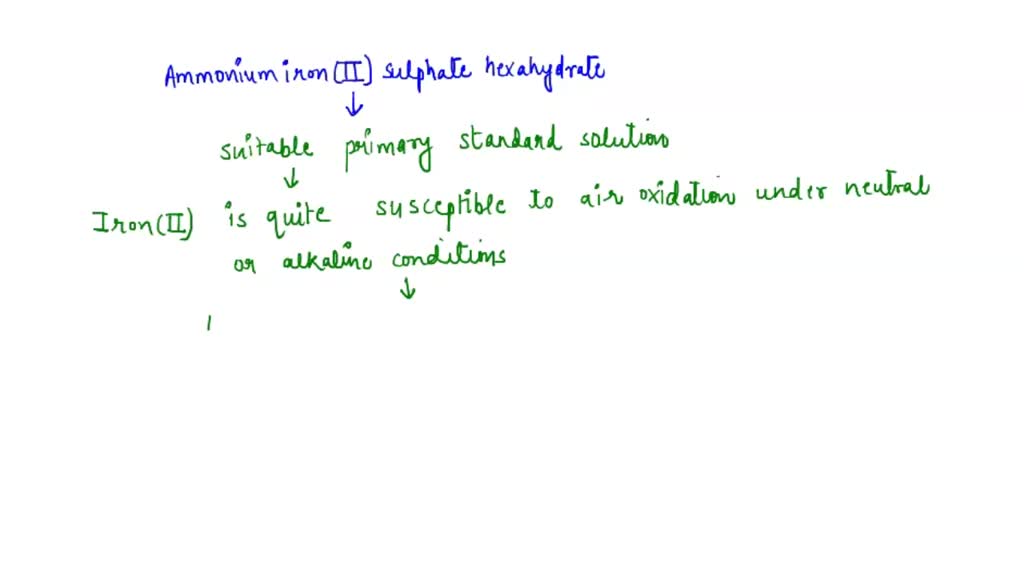 Ammonium iron (II) sulphate hexahydrate
↓
suitable primary standard solution
↓
Iron (II) is quite susceptible to air oxidation under neutral
or alkaline conditions
↓